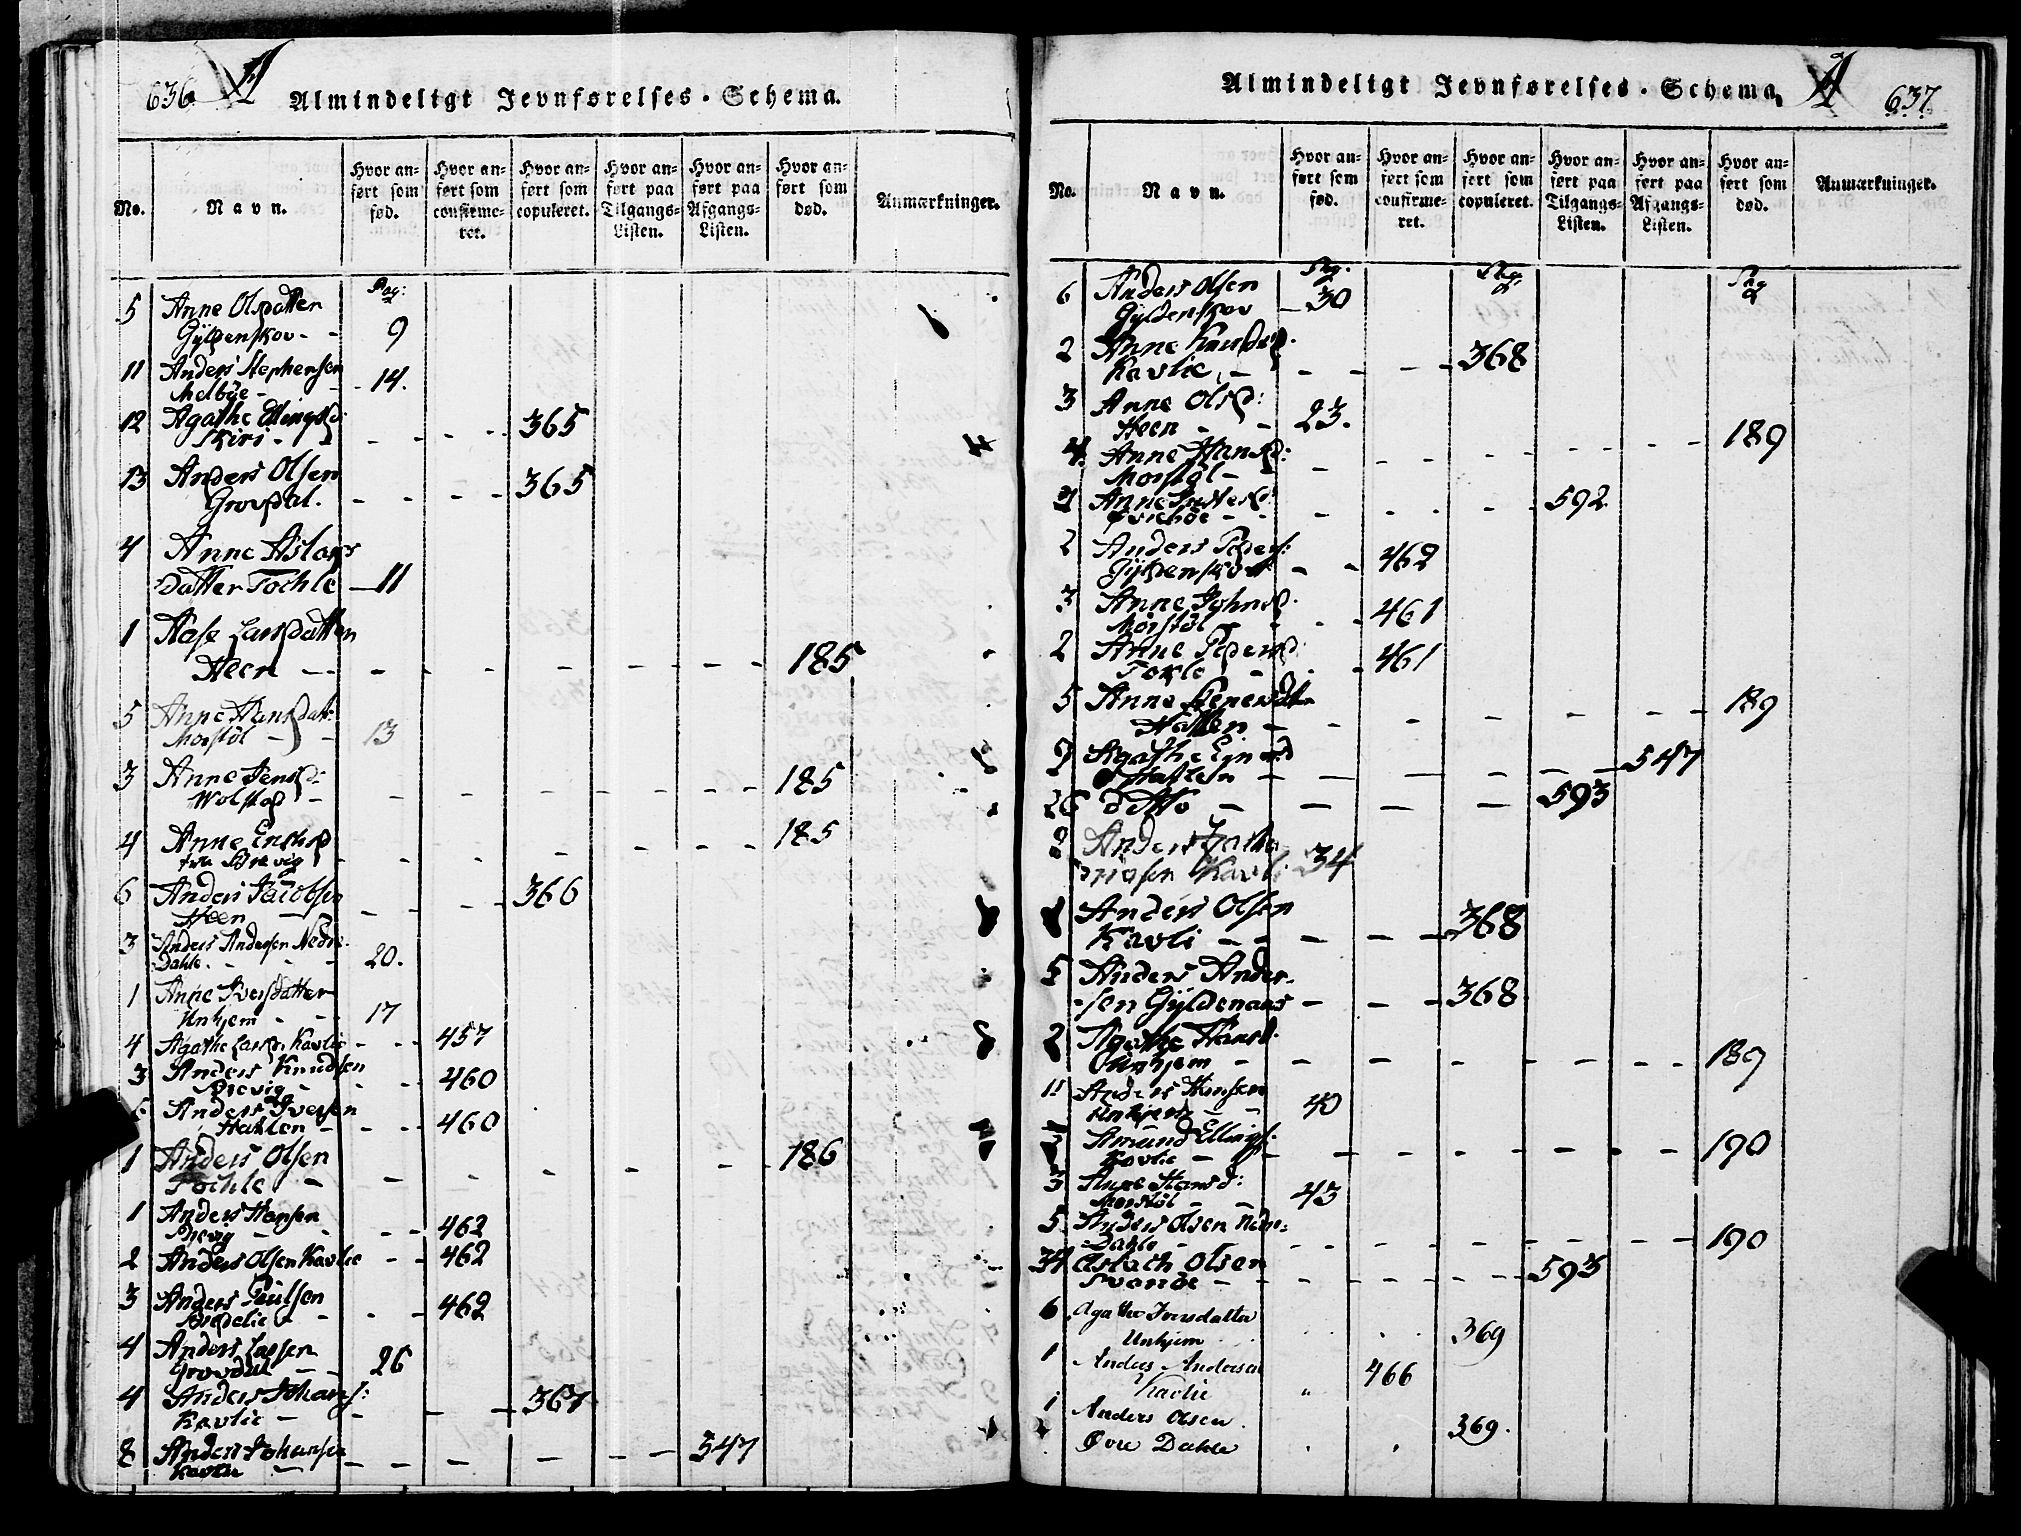 636 A
Almindeligt Jevnførelses-Schema.
No.
Navn.
Hvor an-
ført som
fød.
Hvor an-
ført som
confirme-
ret.
Hvor an-
ført som
copuleret.
Hvor an-
ført paa
Tilgangs-
Listen.
Hvor an-
ført paa
Afgangs-
Listen.
Hvor an-
ført som
død.
Anmærkninger.
Pag:
5 Anne Olsdatter
Gyldenskov - - 9
11 Anders Stephensen
Melböe - - 14.
12 Agathe Ellingsd:
Skiri - - - - - 365
13 Anders Olsen
Grovdal. - - - - 365
4 Anne Aslags
Datter Tochle - 11
1 Aase Larsdatter
Heen - - - - - - - - - 185
5 Anne Hansdatt:
Morstöl - - 13
3 Anne Jensd:
Wolstad - - - - - - - - 185
4 Anne Knudsd
fra Brevig - - - - - - - 185
6 Anders Jacobsen
Heen - - - - 366
3 Anders Andersen Nedre
Dahle. - - - 20.
1 Anne Iversdatter
Unhjem - - - 17
4 Agathe Larsd. Kavlie - - - 457
3 Anders Knudsen
Brevig - - - 460
6 Anders Iversen
Hatlen - - - 460
1 Anders Olsen
Tochle - - - - - - - 186
1 Anders Hansen
Brevig - - - - 462
2 Anders Olsen Kavlie - - 462
3 Anders Paulsen
Bredelie - - - - 462
4 Anders Larsen
Grovdal - - 26
4 Anders Johans:
Kavlie - - - - 367
8 Anders Johansen
Kavlie - - - - - - - 547
Almindeligt Jevnførelses-Schema. A 637
No.
Navn.
Hvor an-
ført som
fød.
Hvor an-
ført som
confirme-
ret.
Hvor an-
ført som
copuleret.
Hvor an-
ført paa
Tilgangs-
Listen.
Hvor an-
ført paa
Afgangs-
Listen.
Hvor an-
ført som
død.
Anmærkninger.
Pag. Pag. Pag
6 Anders Olsen
Gyldenskov - 30
2 Anne Knudsd.
Kavlie. - - - - - 368
3 Anne Olsd:
Heen - - 23.
4. Anne Hansd:
Morstöl - - - - - - - - 189
Anne
- - - - - 592.
2 Anders Peders:
Gyldenskov - - 462
3 Anne Johnsd.
Morstöl - - - 461
2 Anne Pedersd
Tokle - - - 461
5 Anne
Hatlen - - - - - - - 189
Agathe
Hatlen - - - - - - 547
26 ditto - - - - 593
Anders
Kavli 34
Anders Olsen
Kavli - - - - - 368
5 Anders Ander-
sen Gyldenaas - - - 368
2 Agathe Hansd.
Unhjem - - - - - - - - 189
11 Anders Hansen
Unhjem - - 40
Amund Ellings:
Kavlie - - - - - - - - 190
3 Anne Hansd:
Morstöl - - 43
5 Anders Olsen Nedre-
Dahle - - - - - - - - 190
34 Aslach Olsen
Svanöe - - - - - - - 593
6 Agathe Iversdatter
Unhjem . . . 369
1 Anders Andersen
Kavlie " 466
1 Anders Olsen.
Øvre Dahle . . 369.